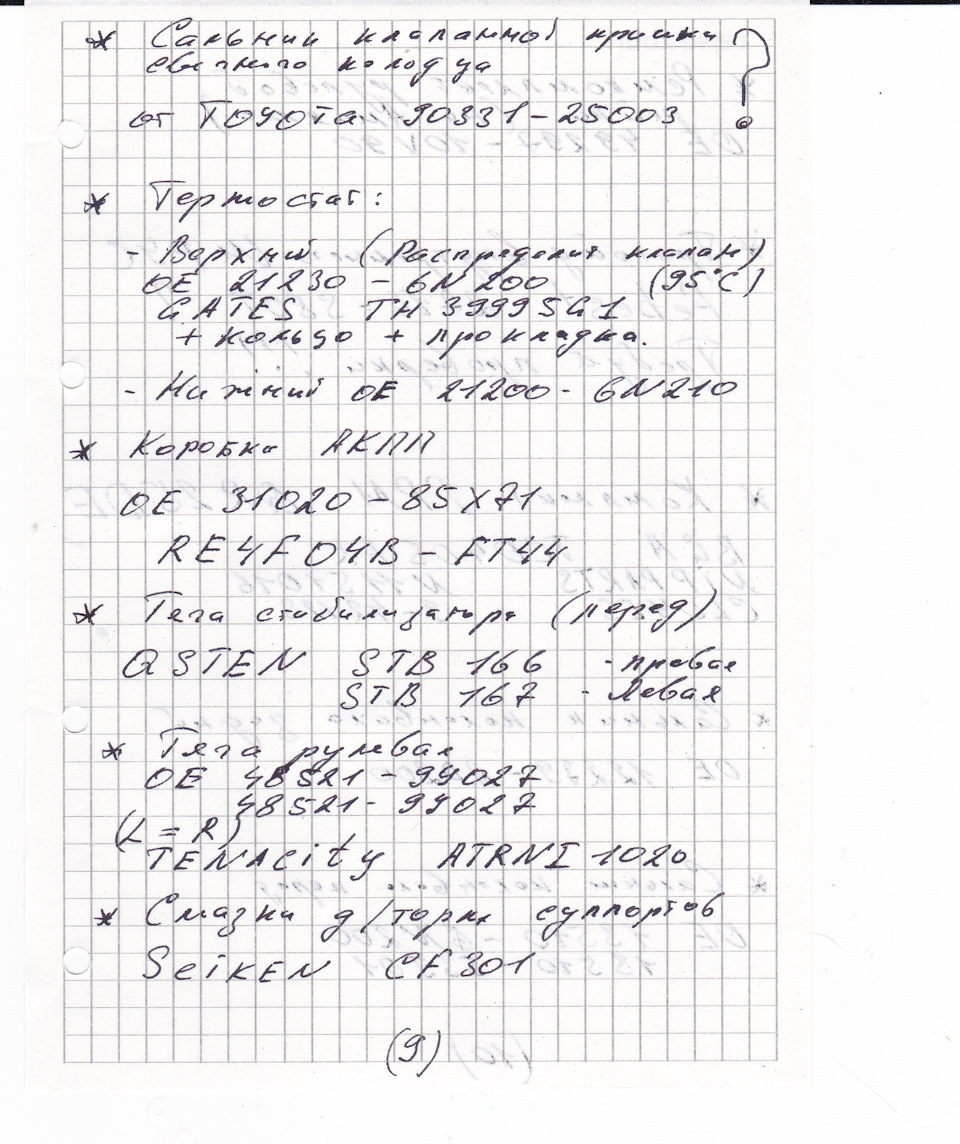 * Сальник клапанной крышки ?
свечного колодца
от Тойота 90331-25003
* Термостат:
- Верхний (Распределит клапан)
OE 21230-6N200 (95°C)
GATES TH39995G1
+ кольцо + прокладка.
- Нижний OE 21200-6N210
* Коробка АКПП
OE 31020-85X71
RE4F04B-FT44
* Тяга стабилизатора (перед)
QSTEN STB 166 - правая
STB 167 - Левая
* Тяга рулевая
OE 48521-99027
48521-99027
(L = R)
TENACity ATRNI 1020
* Смазка д/торм суппортов
SeiKEN CF301
(9)